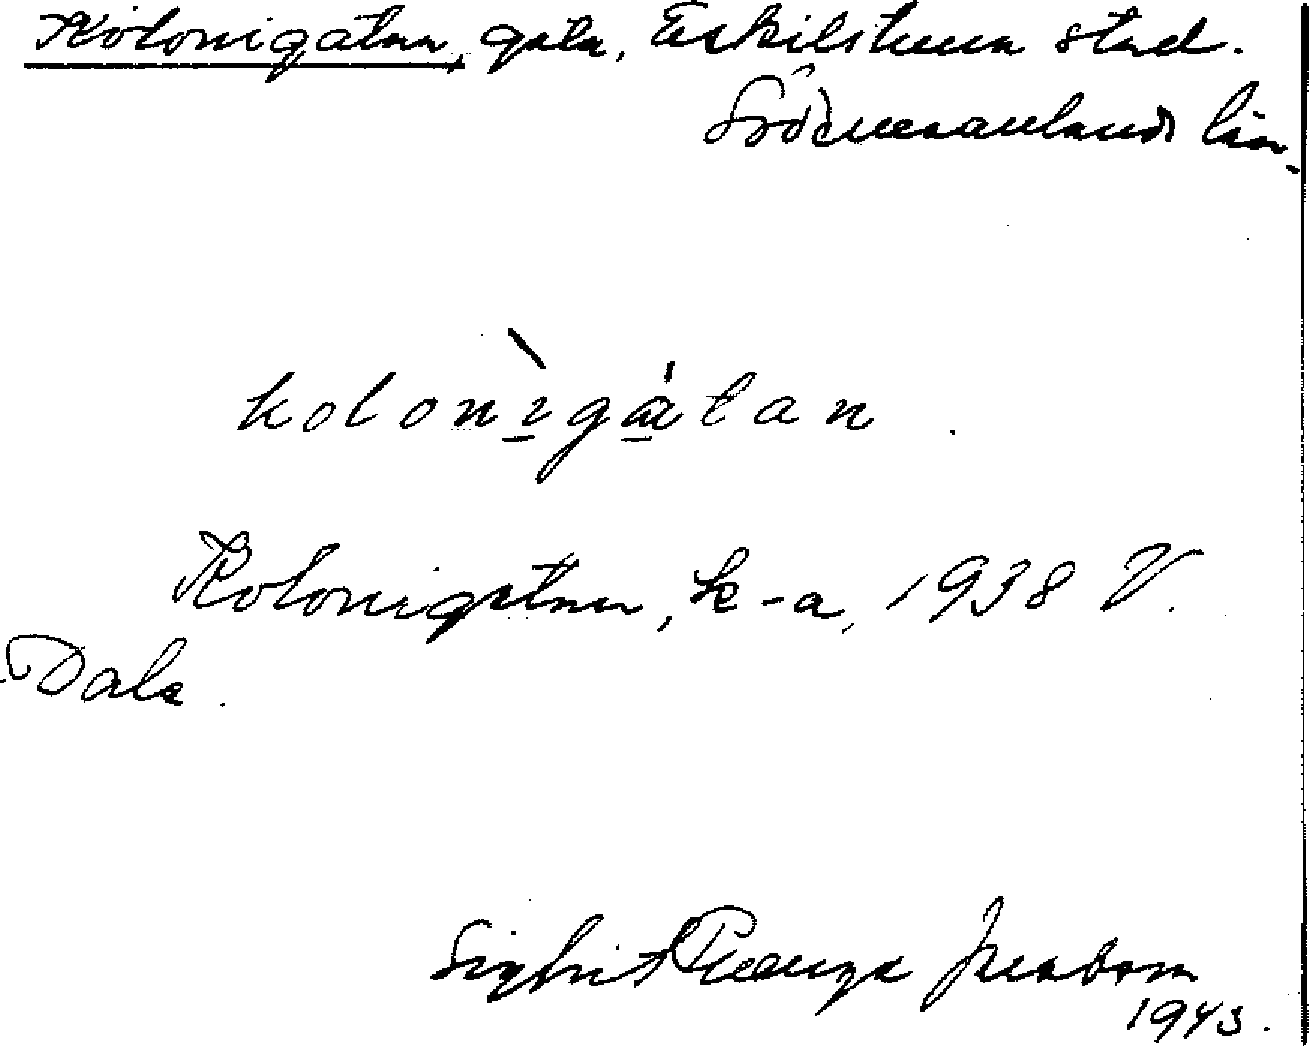 Kolonigatan, gata, Eskilstuna stad.
Södermanlands län.
kolonìgátan.
Kolonigatan, k-a, 1938 V.
Dala.
Sigfrid
1943.